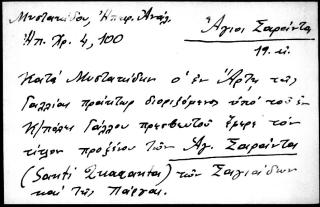 Μυστακίδου, Ἠπειρ. Ἀνάλ.
Ἠπ. Χρ. 4, 100
Ἅγιοι Σαράντα
19. αἰ.
Κατὰ Μυστακίδην ὁ ἐν Ἄρτῃ τῆς
Γαλλίας πράκτωρ διοριζόμενος ὑπὸ τοῦ ἐν
Κ/πόλει Γάλλου πρεσβευτοῦ ἔφερε τὸν
τίτλον προξένου τῶν Ἁγ. Σαράντα
(Santi Quaranta) τῶν Σαγιάδων
καὶ τῆς Πάργας.